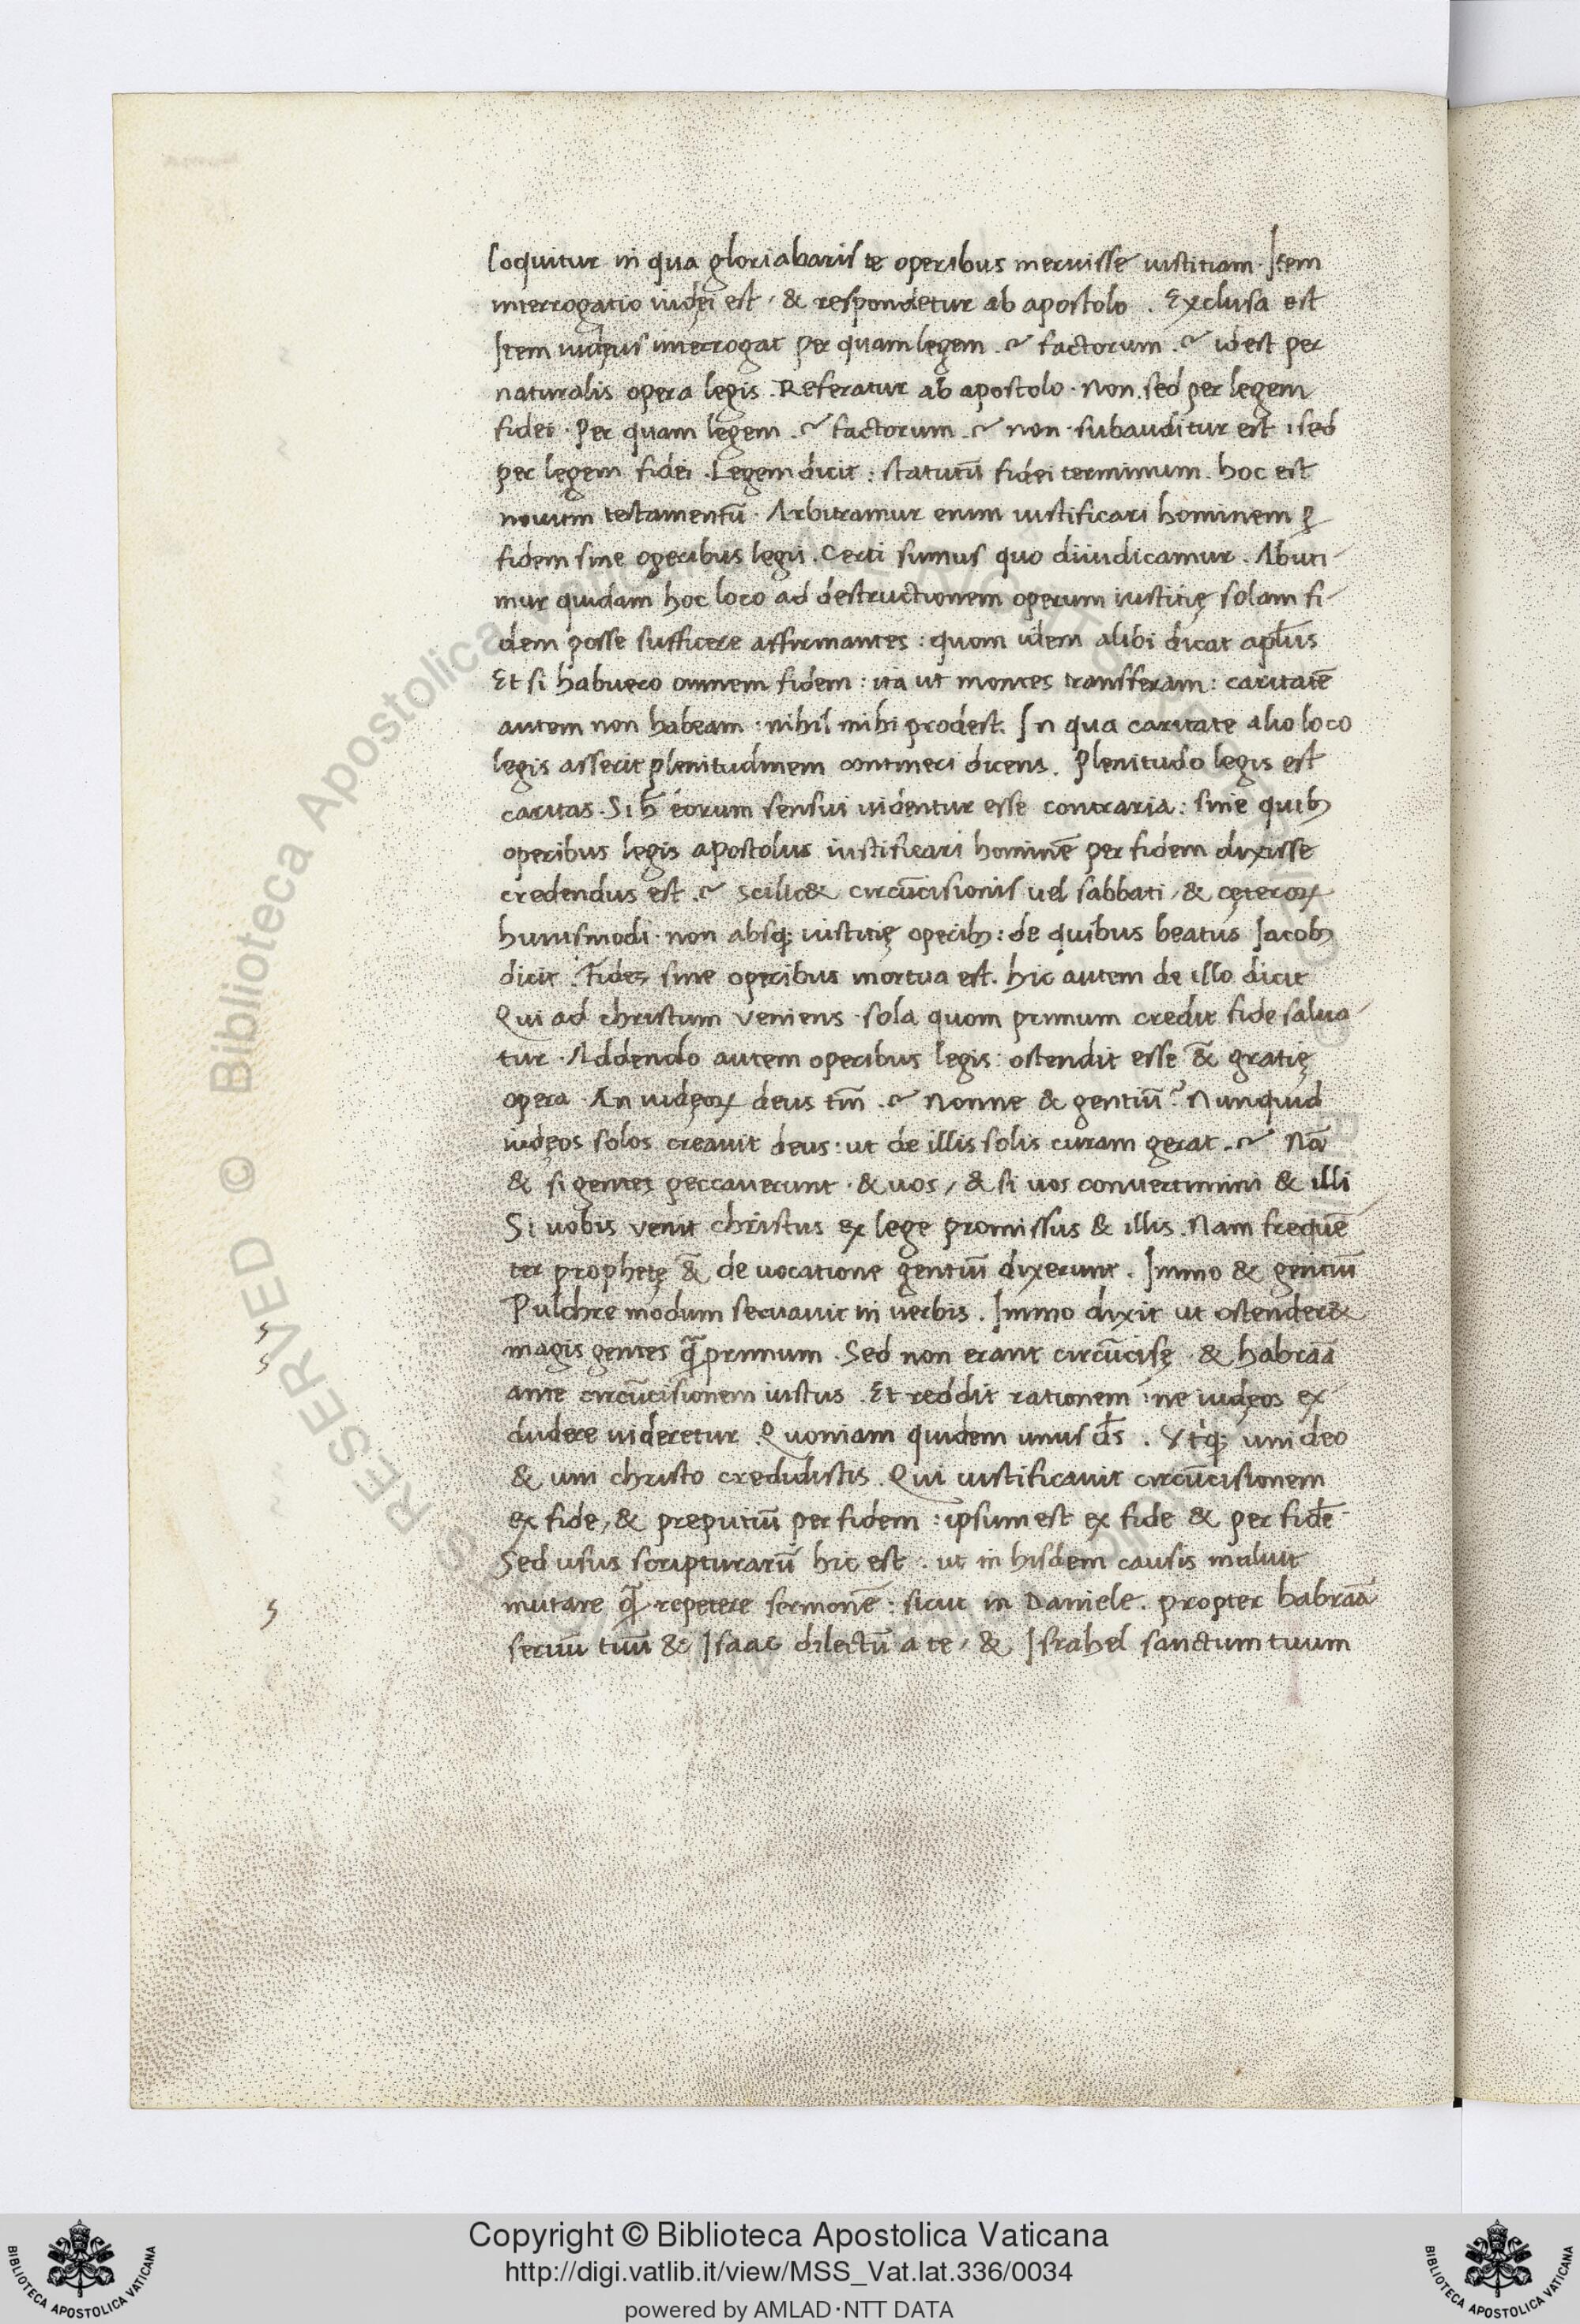 loquitur in qua gloriabaris te operibus meruisse iustitiam. Item
interrogatio iudęi est, & respondetur ab apostolo. Exclusa est
Item iudęus interrogat per quam legem.~ factorum.~ id est per
naturalis opera legis. Referatur ab apostolo. Non. sed per legem
fidei. Per quam legem.~ factorum.~ non. subauditur est, sed
per legem fidei. Legem dicit: statutū fidei terminum. hoc est
novum testamentū. Arbitramur enim iustificari hominem ꝑ
fidem sine operibus legis. Certi sumus quo diiudicamur. Abuti-
mur quidam hoc loco ad destructionem operum iustitię solam fi-
dem posse sufficere affirmantes: quom idem alibi dicat apl̄us
Et si habuero omnem fidem: ita ut montes transferam: caritatē
autem non habeam: nihil mihi prodest. In qua caritate alio loco
legis asserit plenitudinem contineri dicens. Plenitudo legis est
caritas. Si h̄ eorum sensui uidentur esse contraria: sine quib;
operibus legis apostolus iustificari hominē per fidem dixisse
credendus est.~ scilic& circūcisionis uel sabbati, & cęteroꝝ
huiusmodi. non absq; iustitię operib;: de quibus beatus Iacob;
dicit. Fides sine operibus mortua est. hic autem de illo dicit
Qui ad christum veniens. sola quom primum credit fide salua-
tur. Addendo autem operibus legis: ostendit esse & gratię
opera. An iudęoꝝ deus tm̄.~ Nonne & gentiū? Nunquid
iudęos solos creauit deus: ut de illis solis curam gerat.~ Nā
& si gentes peccauerunt. & uos, & si uos convertimini & illi
Si uobis venit christus ex lege promissus & illis. Nam frequē
ter prophetę & de uocatione gentiū dixerunt. Immo & gentiū
Pulchre modum seruauit in uerbis. Immo dixit ut ostender&
magis gentes q̄ primum. Sed non erant circūcisę. & habraā
ante circūcisionem iustus. Et reddit rationem: ne iudęos ex-
cludere uideretur. Quoniam quidem unus d̄s. Vtiq; uni deo
& uni christo credidistis. Qui iustificauit circūcisionem
ex fide, & preputiū per fidem: ipsum est ex fide & per fidē
Sed usus scripturarū hic est. ut in hisdem causis maluit
mutare q̄ repetere sermonē: sicut in Daniele. propter habraā
seruū tuū & Isaac dilectū a te, & Israhel sanctum tuum
Copyright © Biblioteca Apostolica Vaticana
http://digi.vatlib.it/view/MSS_Vat.lat.336/0034
powered by AMLAD·NTT DATA